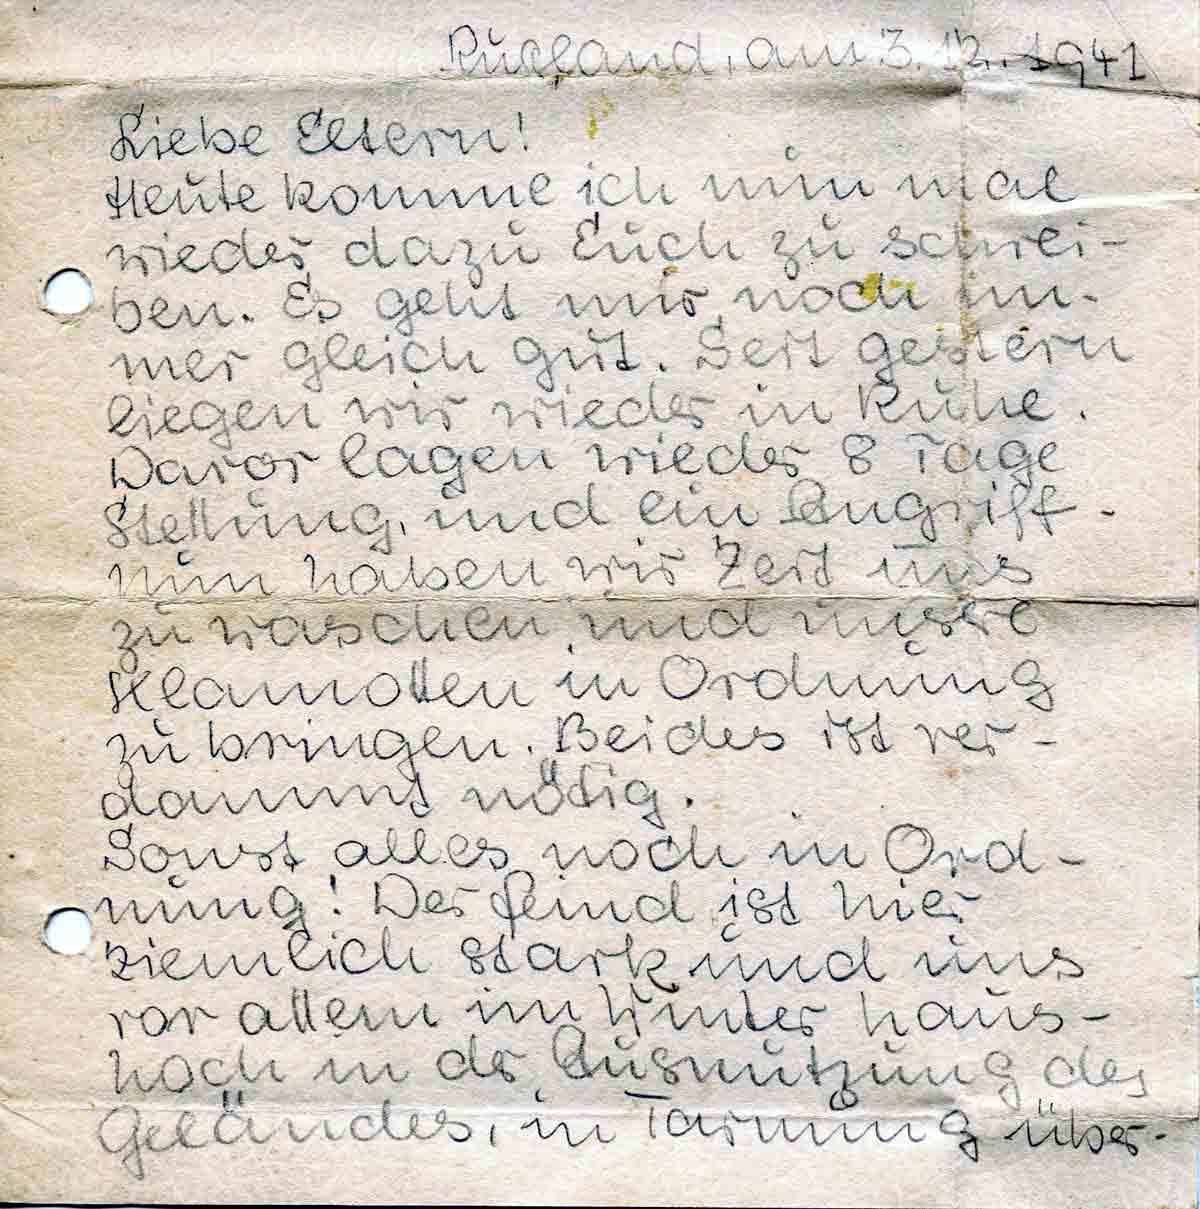 Rußland, am 3. 12. 1941
Liebe Eltern!
Heute komme ich nun mal
wieder dazu Euch zu schrei-
ben. Es geht mir noch im-
mer gleich gut. Seit gestern
liegen wir wieder in Ruhe.
Davor lagen wieder 8 Tage
Stellung, und ein Angriff.
Nun haben wir Zeit uns
zu waschen und unsre
Klamotten in Ordnung
zu bringen. Beides ist ver-
dammt nötig.
Sonst alles noch in Ord-
nung! Der Feind ist hier
ziemlich stark und uns
vor allem im Winter haus-
hoch in der Ausnutzung des
Geländes, in Tarnung über-